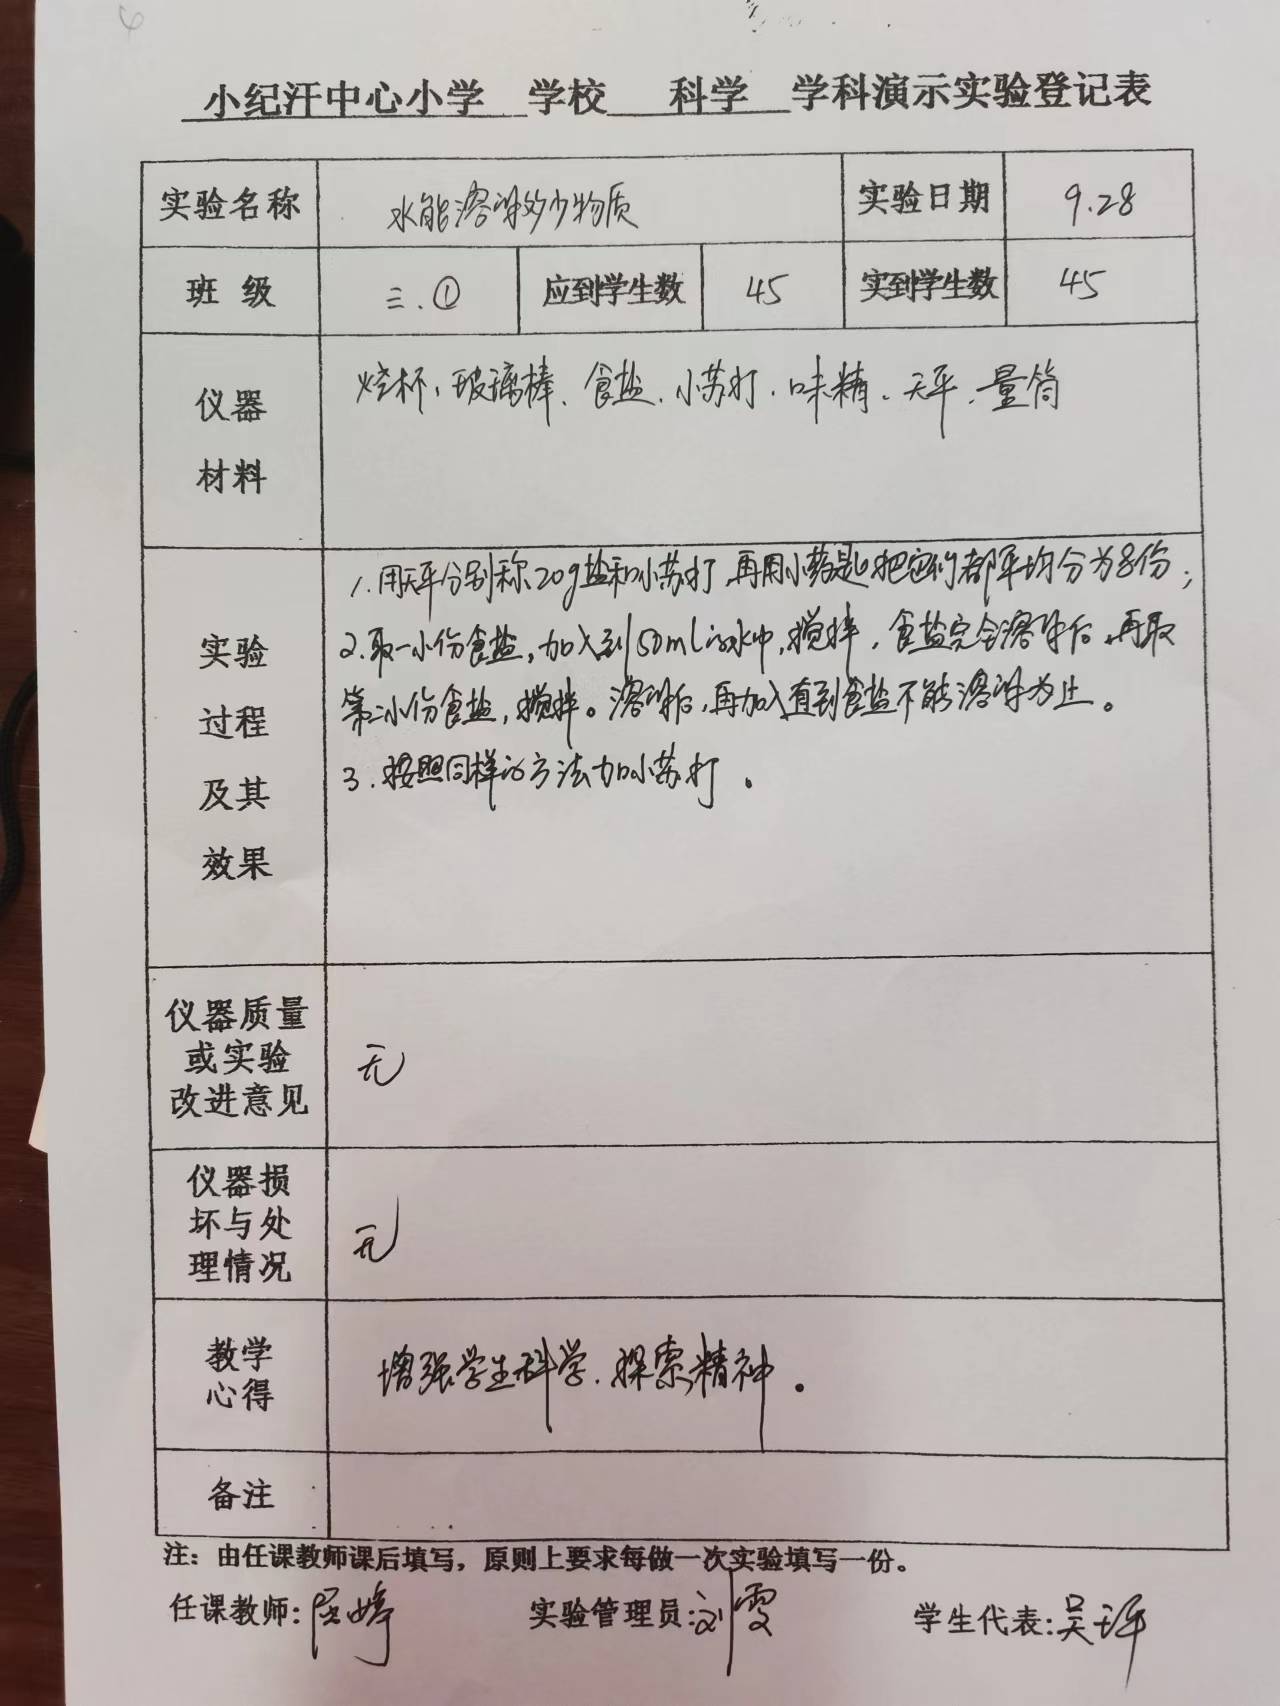 小纪汗中心小学 学校 科学 学科演示实验登记表
实验名称 水能溶解多少物质 实验日期 9.28
班级 三.① 应到学生数 45 实到学生数 45
仪器材料 烧杯、玻璃棒、食盐、小苏打、味精、天平、量筒
实验过程及其效果
1.用天平分别称20g盐和小苏打,再用小药匙把它们都平均分为8份;
2.取一小份食盐,加入到50ml的水中,搅拌,食盐完全溶解后,再取
第二小份食盐,搅拌。溶解后,再加入直到食盐不能溶解为止。
3.按照同样的方法加小苏打。
仪器质量或实验改进意见 无
仪器损坏与处理情况 无
教学心得 增强学生科学、探索精神。
备注
注:由任课教师课后填写,原则上要求每做一次实验填写一份。
任课教师: 婷 实验管理员:刘雯 学生代表:吴